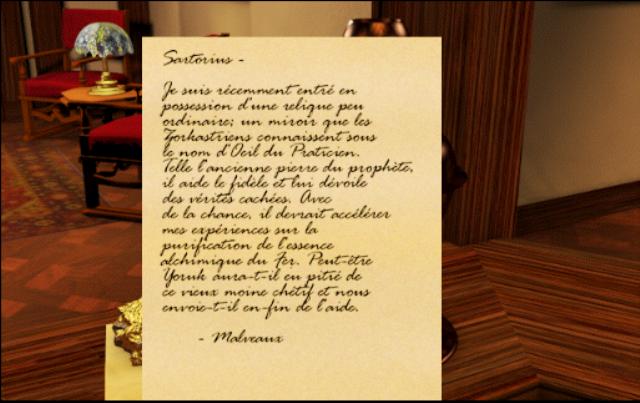 Sartorius -
Je suis récemment entré en
possession d'une relique peu
ordinaire; un miroir que les
Zorkastriens connaissent sous
le nom d'Oeil du Praticien.
Telle l'ancienne pierre du prophète,
il aide le fidèle et lui dévoile
des vérités cachées. Avec
de la chance, il devrait accélérer
mes expériences sur la
purification de l'essence
alchimique du Fer. Peut-être
Yoruk aura-t-il eu pitié de
ce vieux moine chétif et nous
envoie-t-il en-fin de l'aide.
- Malveaux